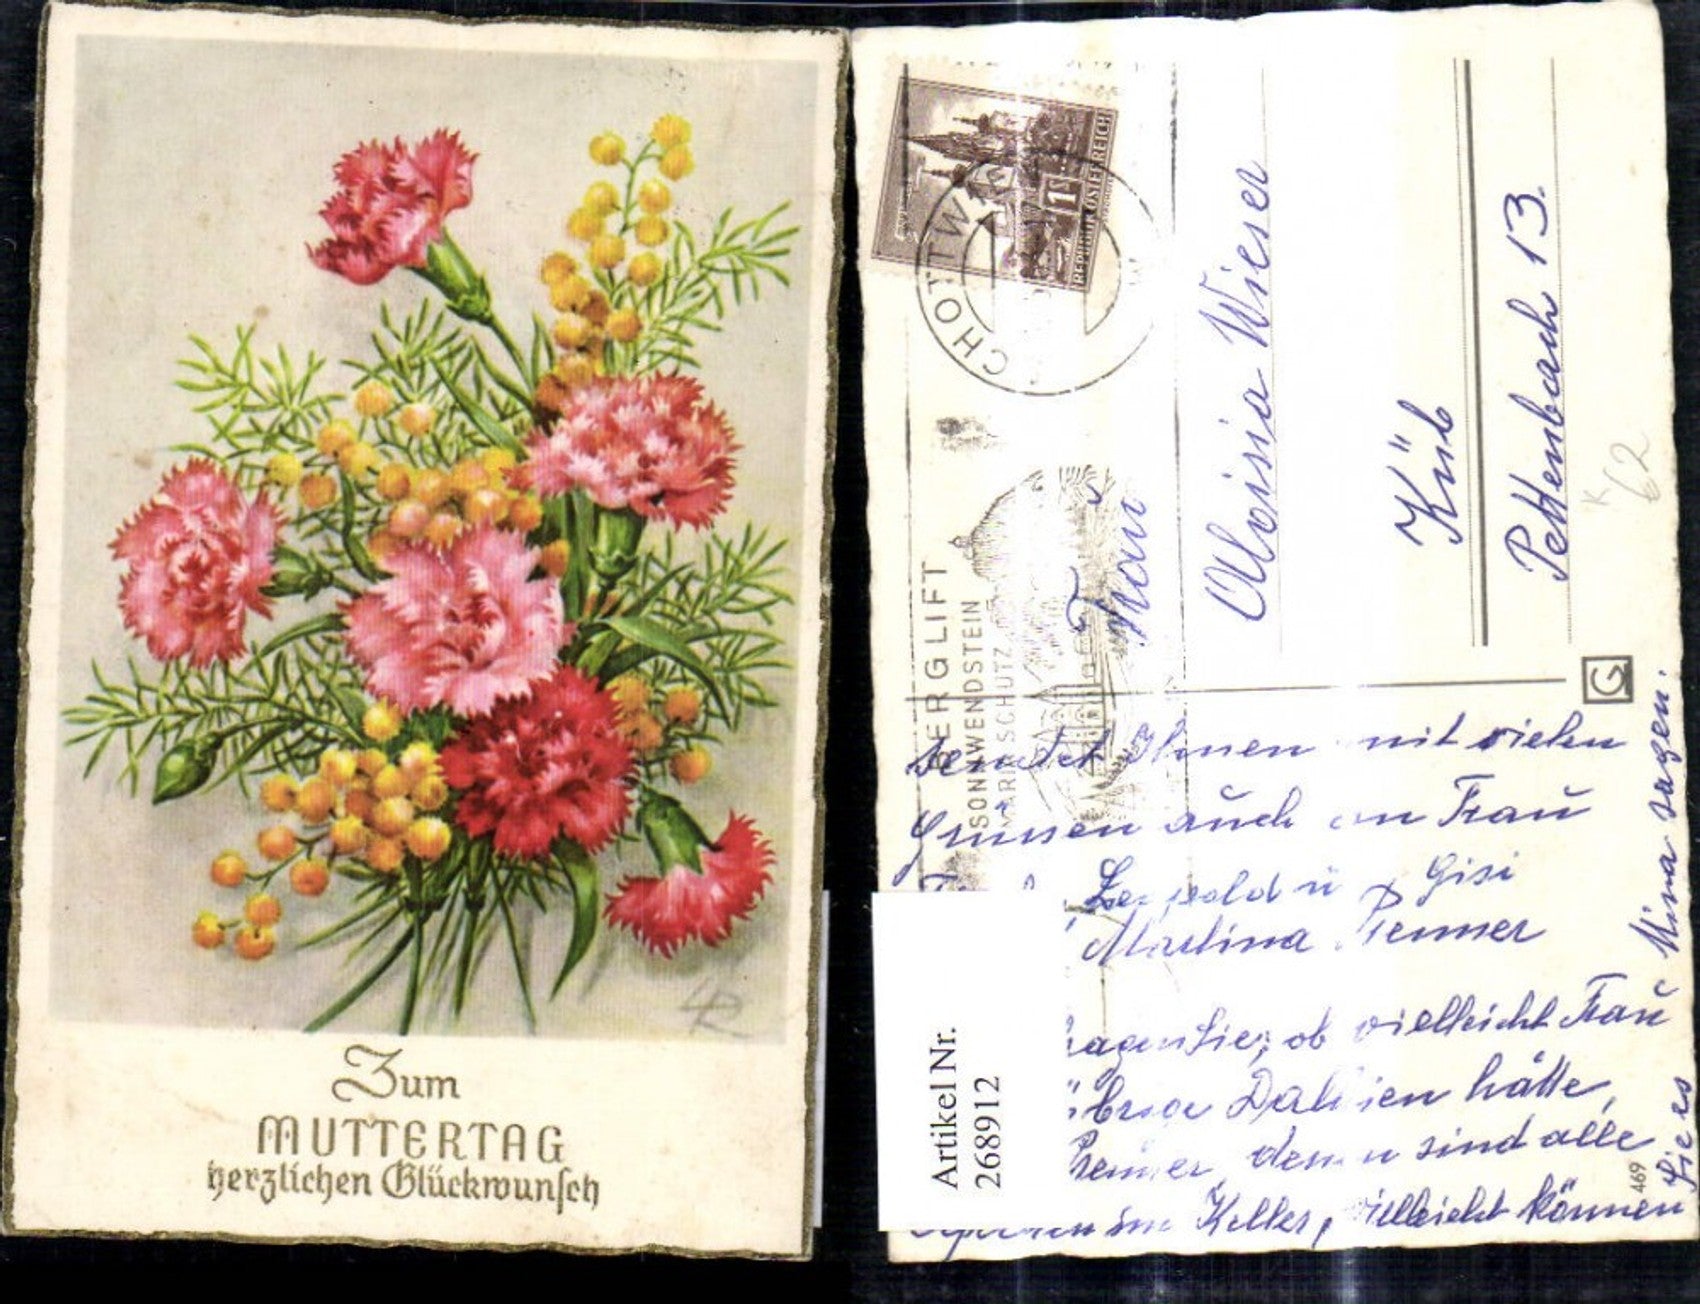 Zum
MUTTERTAG
herzlichen Glückwunsch
LR
REPUBLIK ÖSTERREICH
1
CHOTTWIEN
BERGLIFT
SONNWENDSTEIN
MARIA SCHUTZ
Frau
Aloisia Wieser
Küb
Pettenbach 13.
K
62
G
sendet Ihnen mit vielen
Grüssen auch an Frau
Leopold u Gisi
Martina Renner
Sie, ob vielleicht Frau
Dahlien hätte,
Renner, denen sind alle
im Keller, vielleicht können
Sie es Mina sagen.
469
Artikel Nr.
2689912